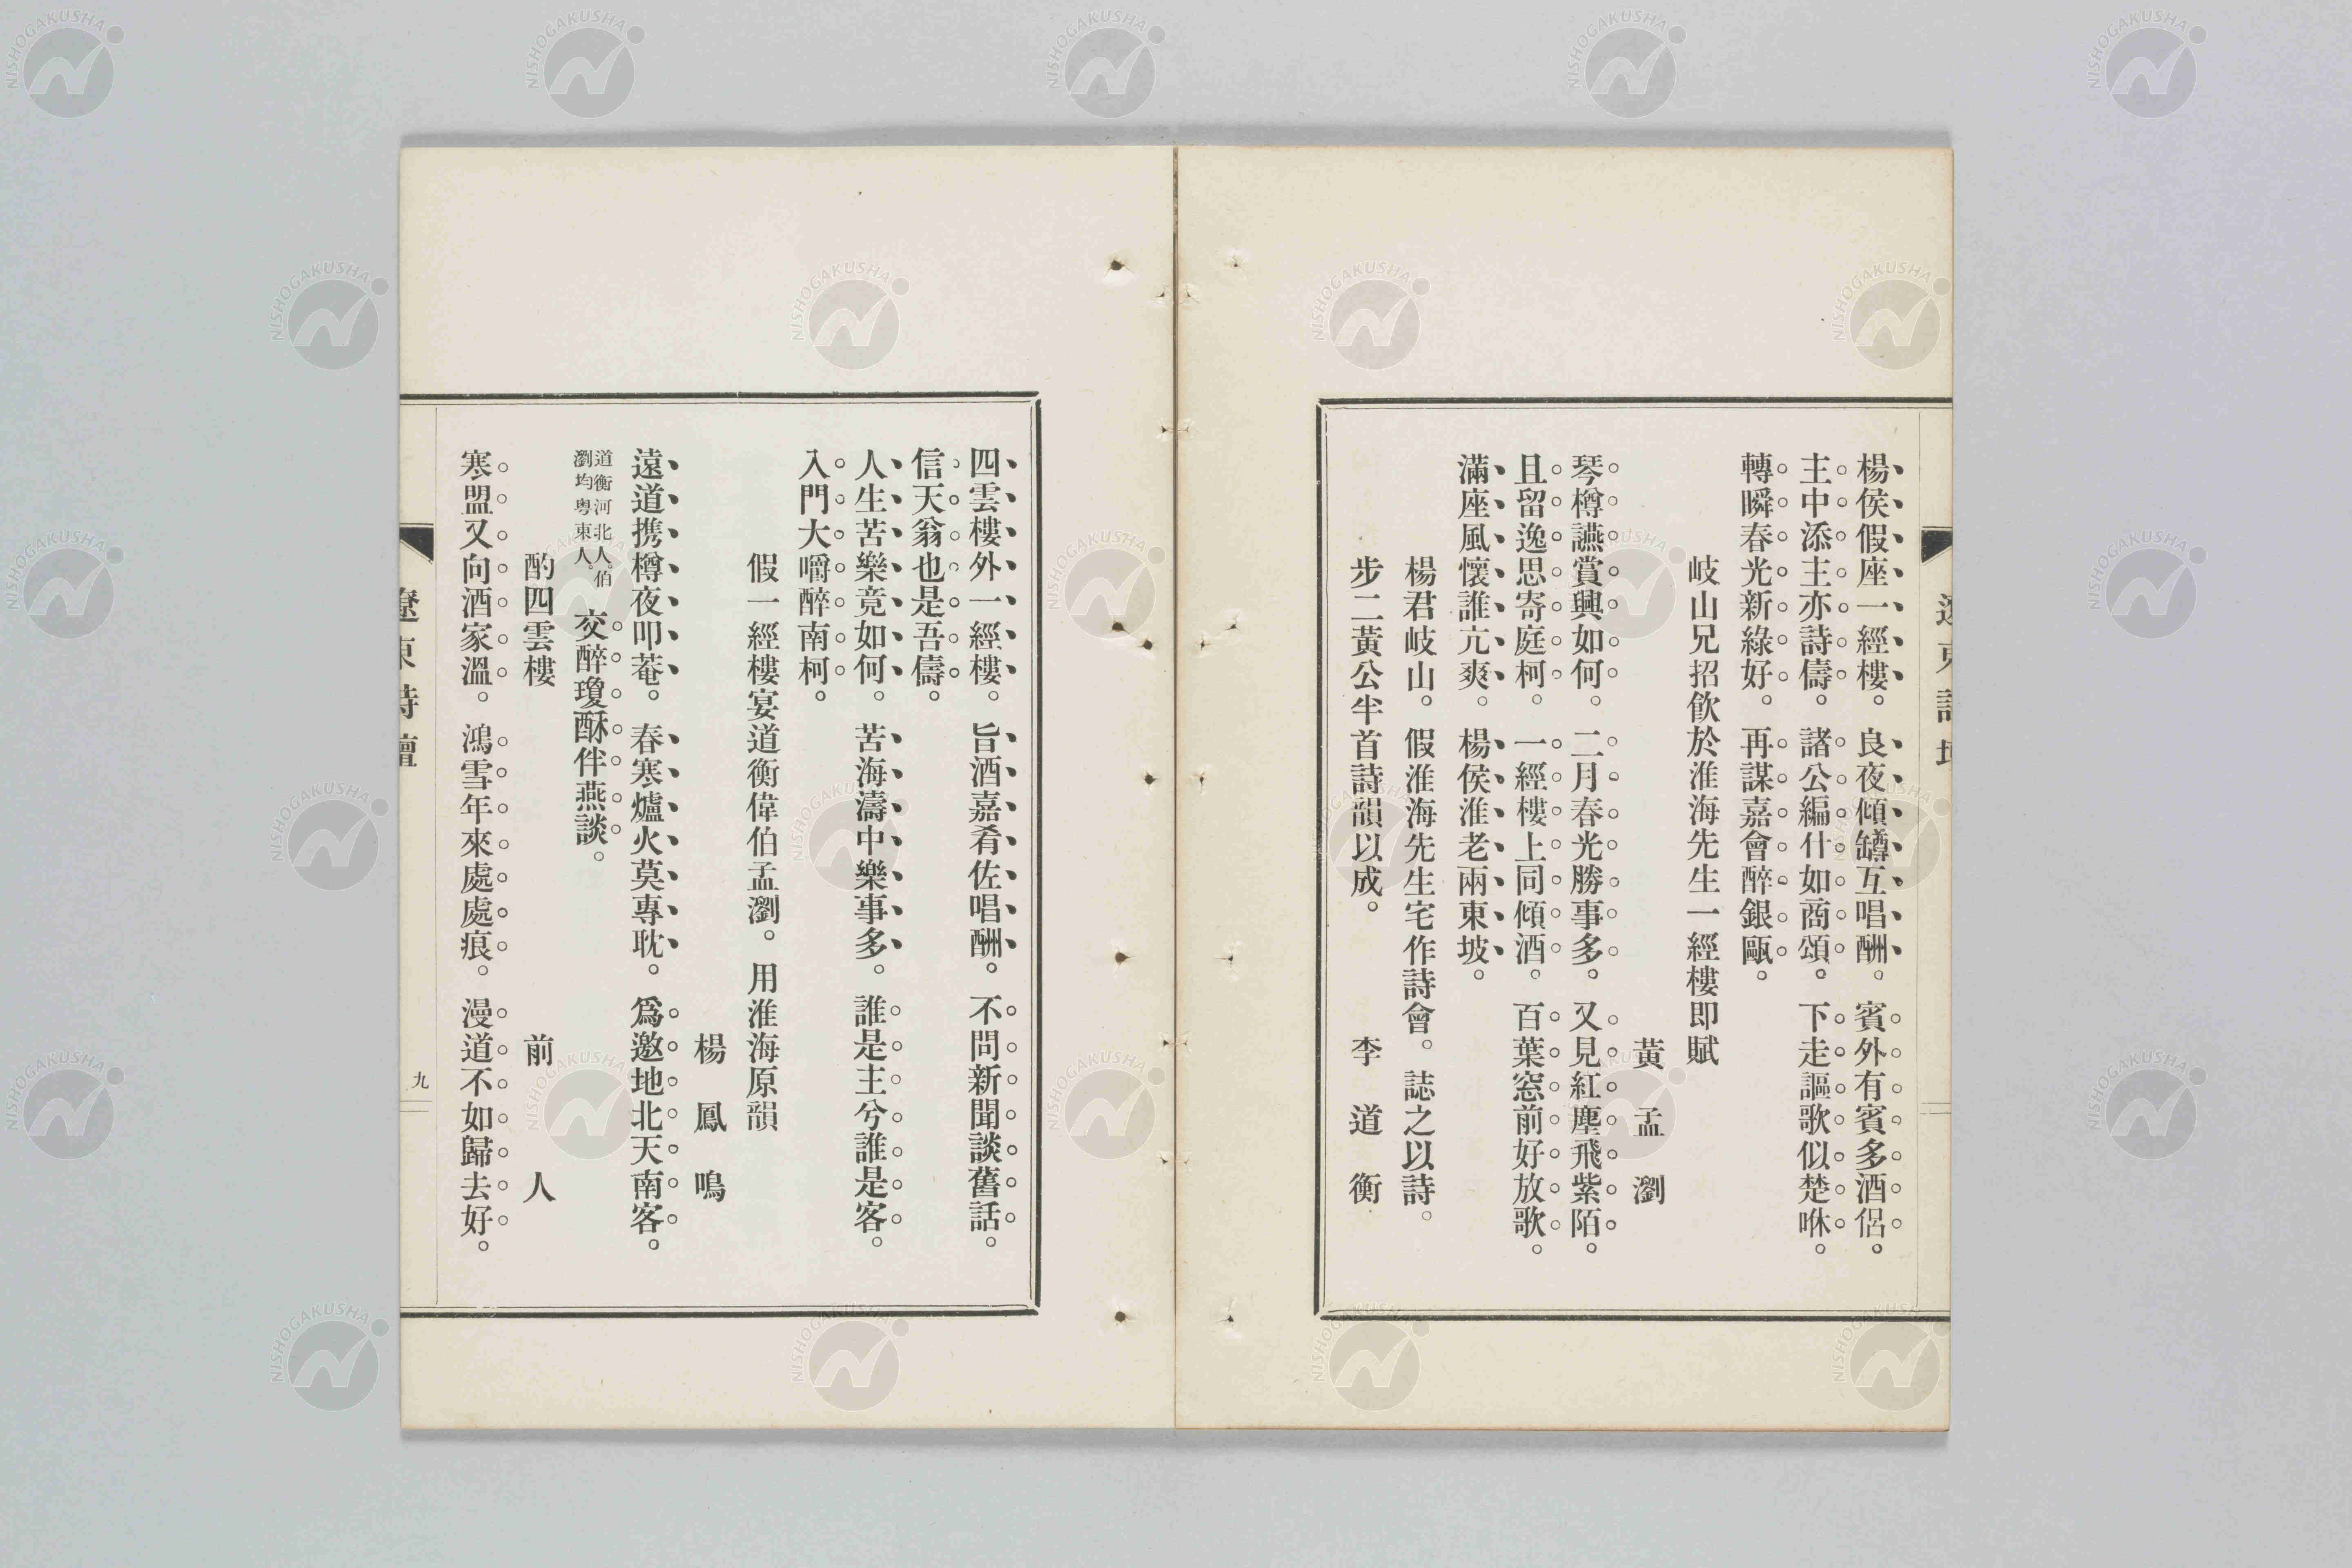 楊侯假座一經樓。良夜傾罇互唱酬。賓外有賓多酒侶。
主中添主亦詩儔。諸公編什如商頌。下走謳歌似楚咻。
轉瞬春光新綠好。再謀嘉會醉銀甌。
岐山兄招飮於淮海先生一經樓即賦
黃孟瀏
琴樽讌賞興如何。二月春光勝事多。又見紅塵飛紫陌。
且留逸思寄庭柯。一經樓上同傾酒。百葉窓前好放歌。
滿座風懷誰亢爽。楊侯淮老兩東坡。
楊君岐山。假淮海先生宅作詩會。誌之以詩。
步二黃公半首詩韻以成。李道衡
四雲樓外一經樓。旨酒嘉肴佐唱酬。不問新聞談舊話。
信天翁也是吾儔。
人生苦樂竟如何。苦海濤中樂事多。誰是主兮誰是客。
入門大嚼醉南柯。
假一經樓宴道衡偉伯孟瀏。用淮海原韻
楊鳳鳴
遠道携樽夜叩菴。春寒爐火莫專耽。爲邀地北天南客。
道衡河北人。伯
瀏均粤東人。
交醉瓊酥伴燕談。
酌四雲樓 前人
寒盟又向酒家溫。鴻雪年來處處痕。漫道不如歸去好。
遼東詩壇
九
NISHOGAKUSHA